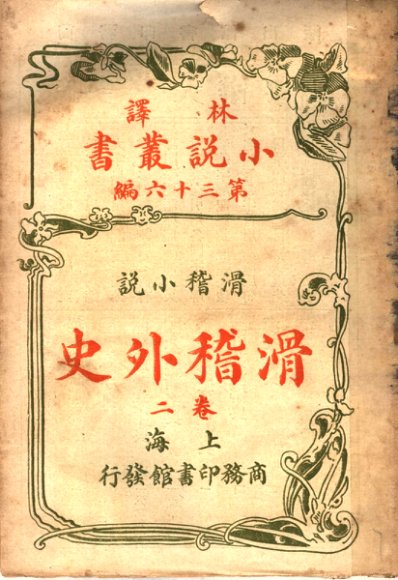 林譯
小說叢書
第三十六編
滑稽小說
滑稽外史
卷二
上海
商務印書館發行